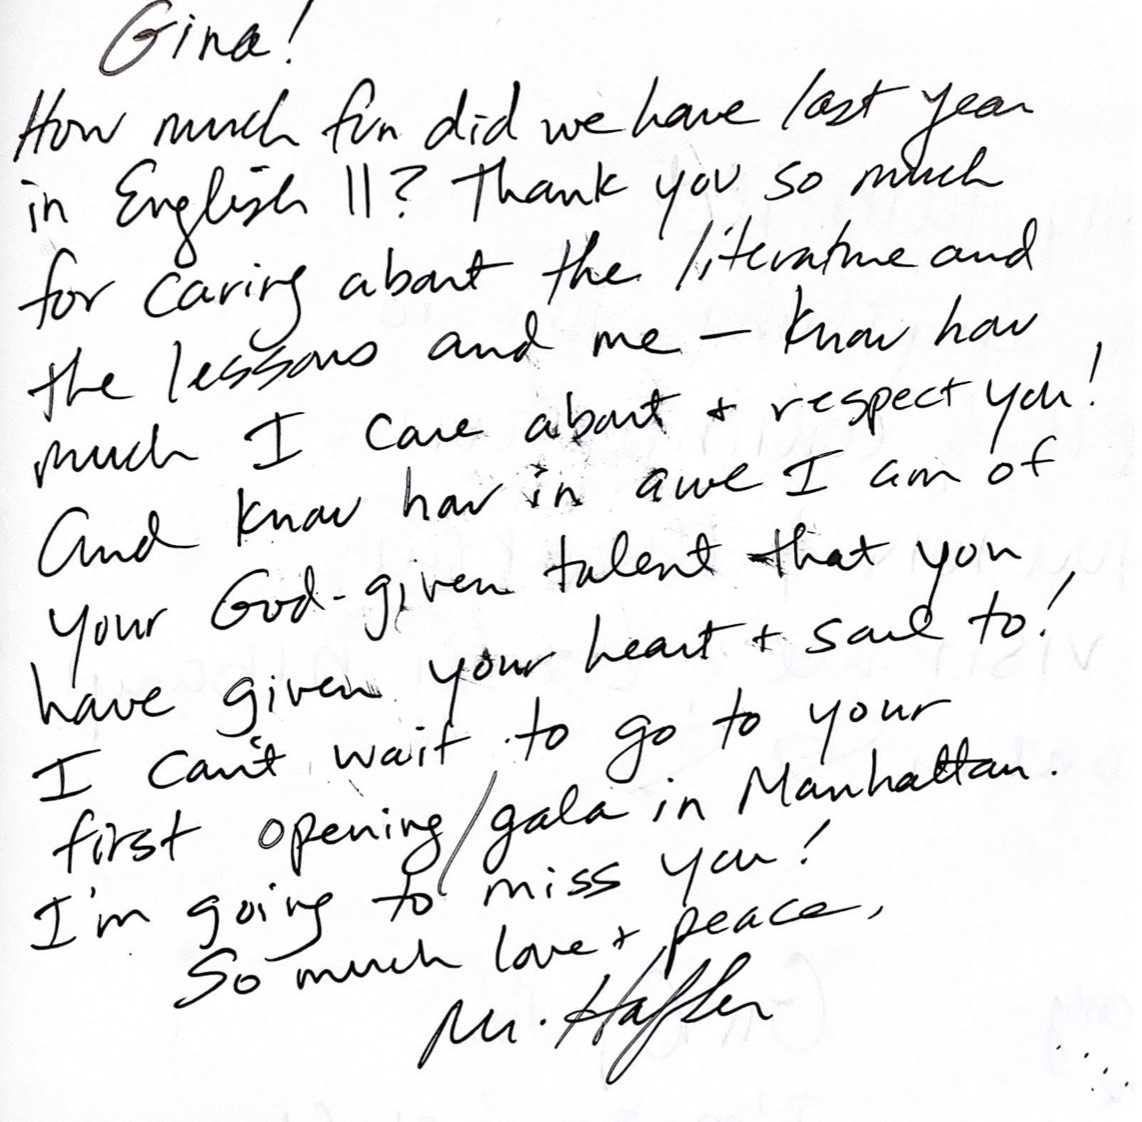 Gina!
How much fun did we have last year
in English 11? Thank you so much
for caring about the literature and
the lessons and me – know how
much I care about + respect you!
And know how in awe I am of
your God-given talent that you
have given your heart + soul to!
I can't wait to go to your
first opening/gala in Manhattan.
I'm going to miss you!
So much love + peace,
Mr.